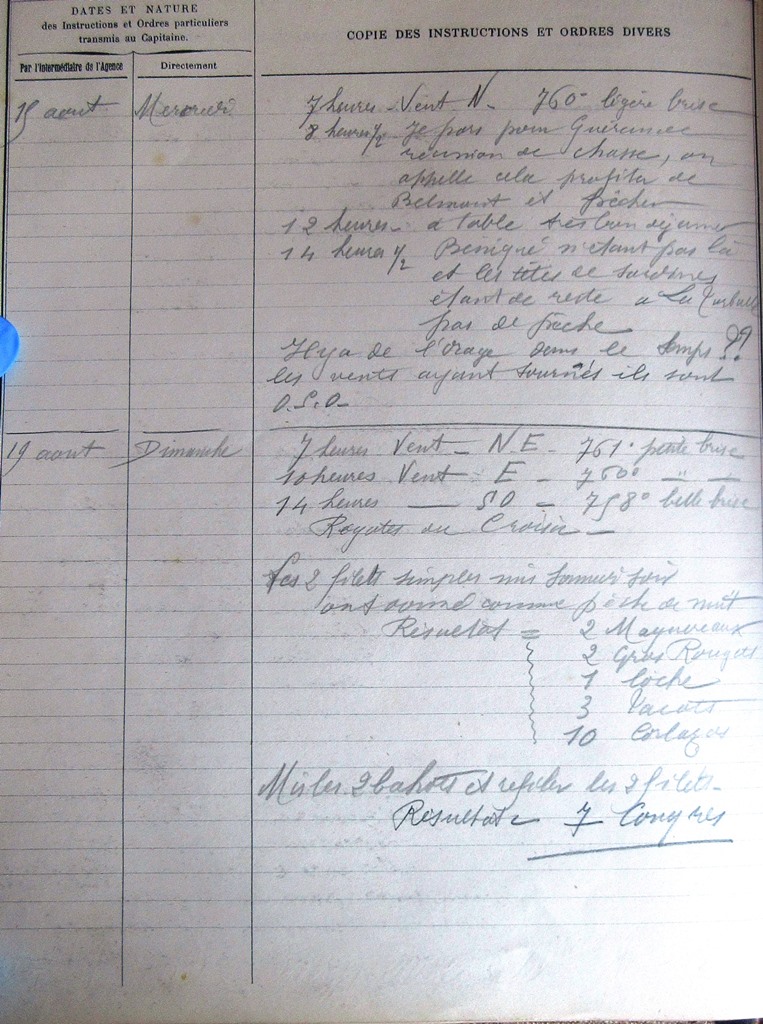 DATES ET NATURE
des Instructions et Ordres particuliers
transmis au Capitaine.
COPIE DES INSTRUCTIONS ET ORDRES DIVERS
Par l'Intermédiaire de l'Agence
Directement
15 aout Mercredi 7 heures - Vent N - 760° légère brise
8 heures 1/2 Je pars pour Guérande
réunion de chasse, on
appelle cela profiter de
Belmont et pêcher
12 heures - à table très bon déjeuner
14 heures 1/2 n'étant pas là
et les têtes de sardines
étant de reste a La Turballe
pas de pêche
Il y a de l'orage dans le temps !!
les vents ayant tournés ils sont
O.S.O-
19 aout Dimanche 7 heures Vent - N.E - 761° petite brise
10 heures Vent E - 760° " -
14 heures — SO - 758° belle brise
Régates au Croisic -
Les 2 filets simples mis Samedi soir
ont donné comme pêche de nuit
Résultat = 2
2 Gros Rougets
1 loche
3
10
Mis les 2 et les 2 filets -
Résultat = 7 Congres